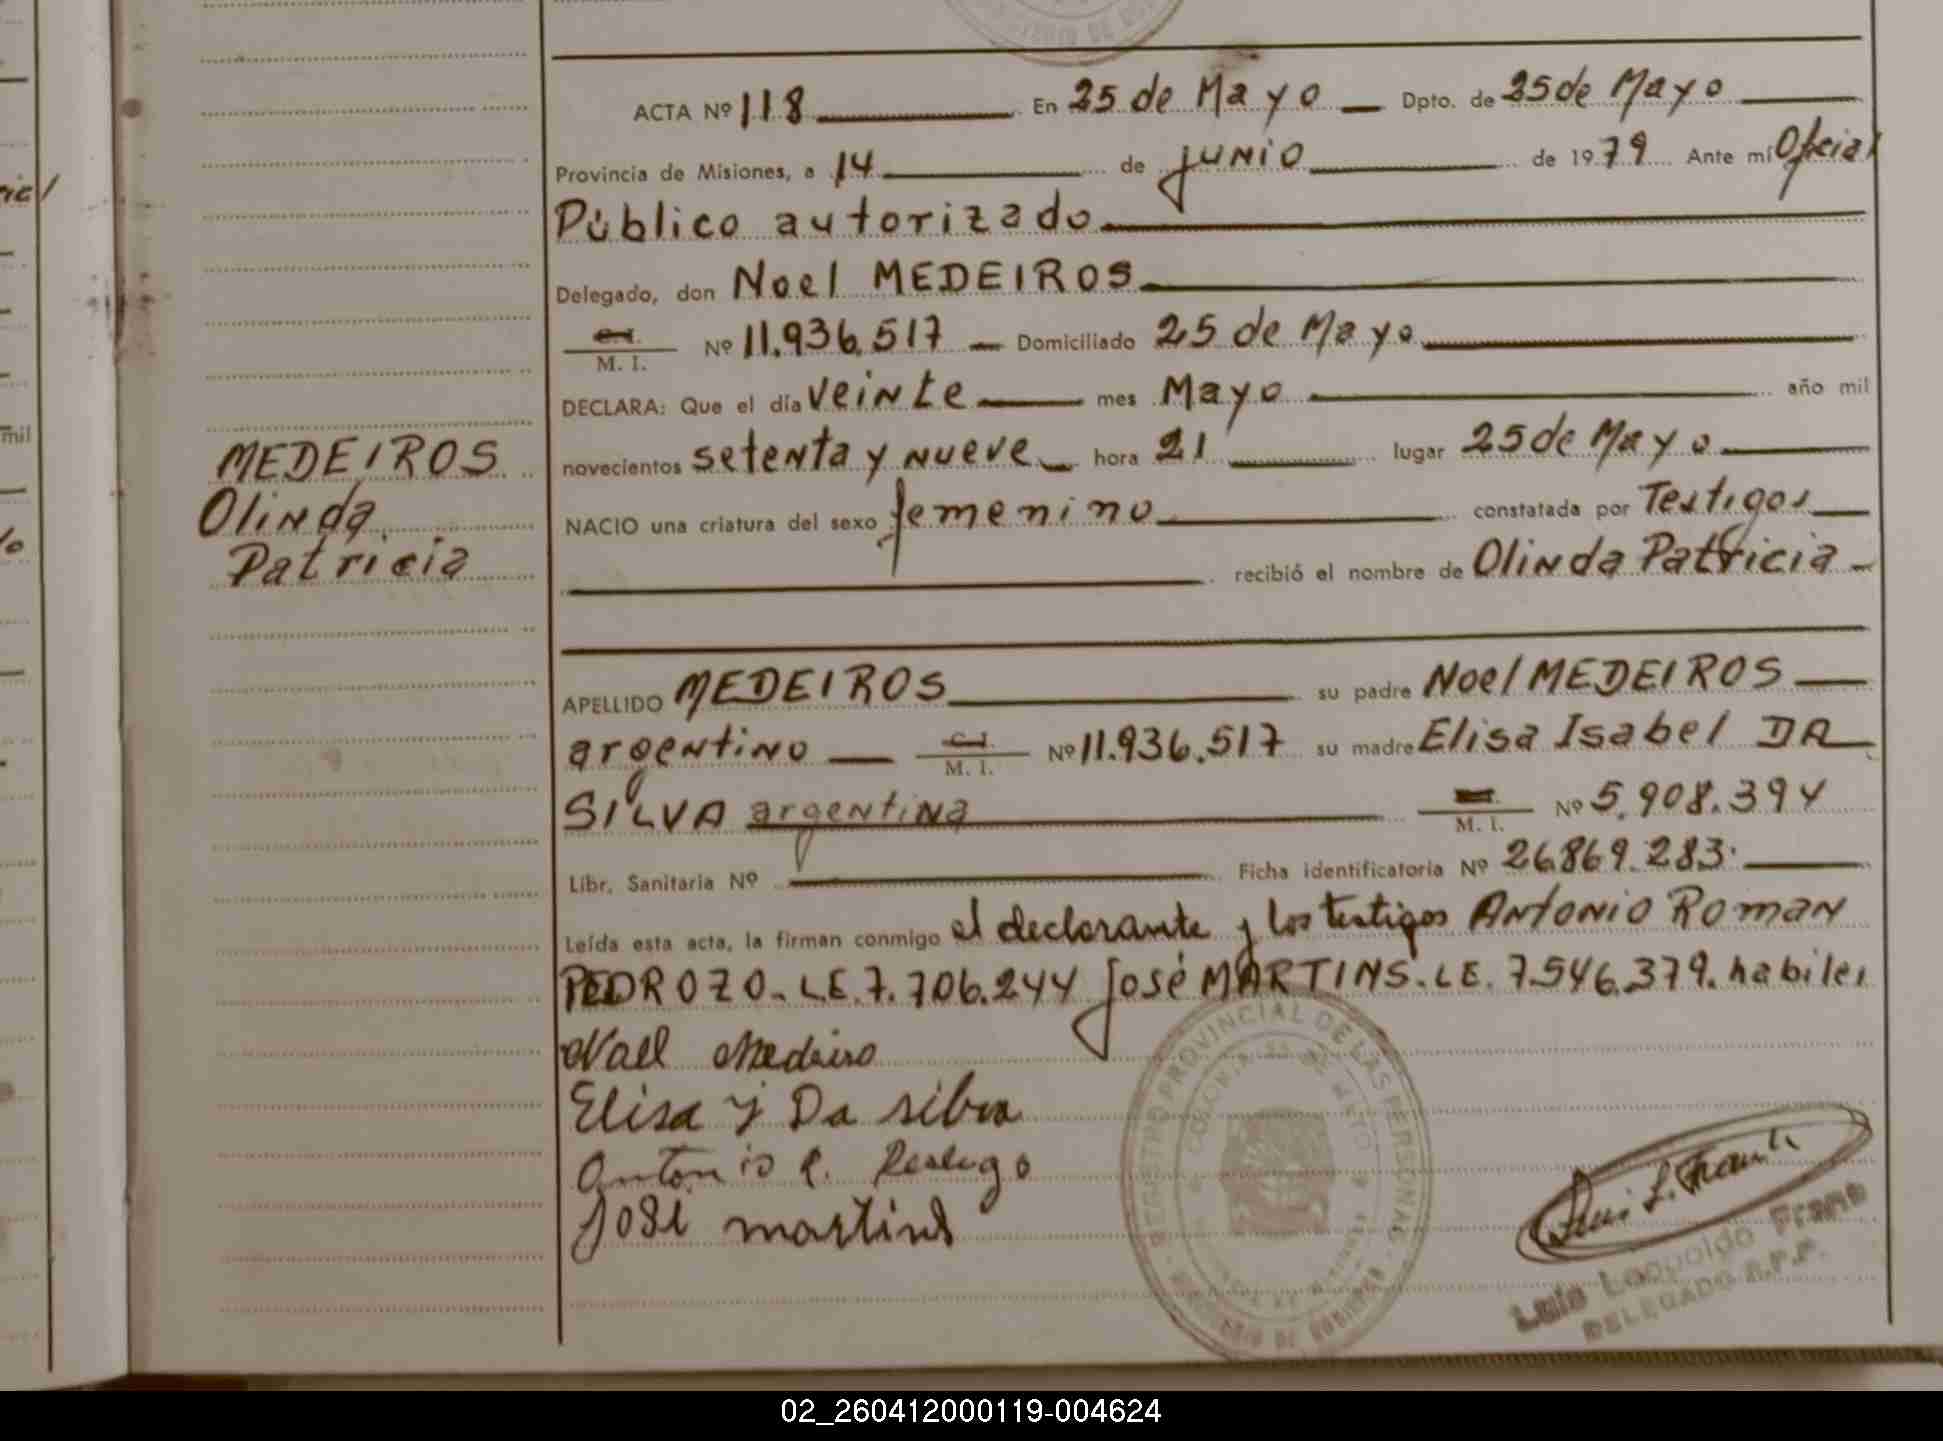 ACTA Nº 118 En 25 de Mayo Dpto. de 25 de Mayo
Provincia de Misiones, a 14 de junio de 1979 Ante mí Oficial
Público autorizado
Delegado, don Noel MEDEIROS
C.I. M. I. Nº 11.936.517 Domiciliado 25 de Mayo
DECLARA: Que el día veinte mes Mayo año mil
novecientos setenta y nueve hora 21 lugar 25 de Mayo
NACIO una criatura del sexo femenino constatada por Testigos
recibió el nombre de Olinda Patricia
MEDEIROS
Olinda
Patricia
APELLIDO MEDEIROS su padre Noel MEDEIROS
argentino C.I. M. I. Nº 11.936.517 su madre Elisa Isabel DA
SILVA argentina M. I. Nº 5.908.394
Libr. Sanitaria Nº Ficha identificatoria Nº 26.869.283
Leída esta acta, la firman conmigo el declarante y los testigos Antonio Roman
PEDROZO. LE. 7.706.244 José MARTINS. LE. 7.546.379. habiles
Noel Medeiro
Elisa Y Da silva
Antonio R.
José martins
REGISTRO PROVINCIAL DE LAS PERSONAS
COLONIA 25 DE MAYO
Luis L. Frank
Luis Leopoldo Frank
DELEGADO R.P.P.
mil
02_260412000119-004624